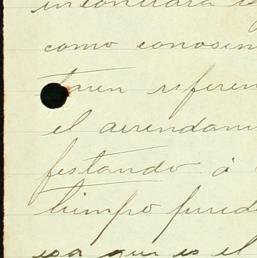 incontrara
como conosim
taren referen
el arrendam
festando á
tiempo pued
esa que es el